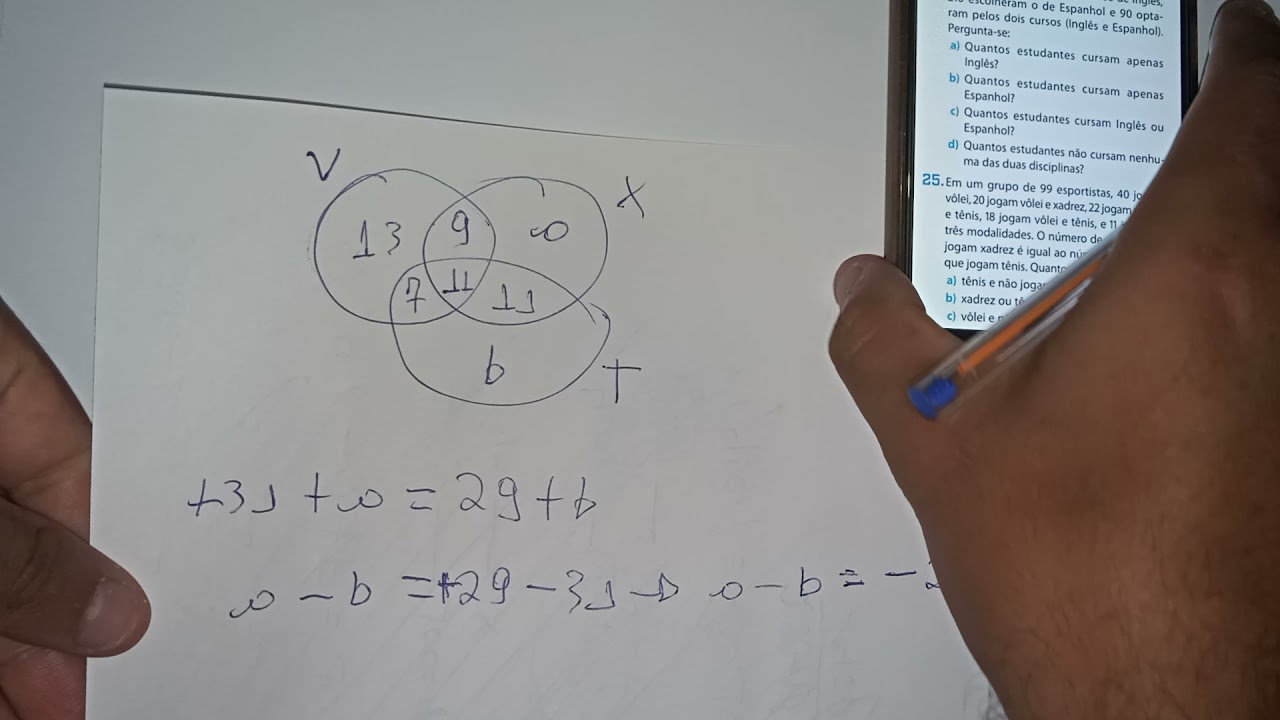 V
X
13 9 a
7 11 11
b
T
+31 + a = 29 + b
a - b = +29 - 31 → a - b = -2
escolheram o de Espanhol e 90 opta-
ram pelos dois cursos (Inglês e Espanhol).
Pergunta-se:
a) Quantos estudantes cursam apenas
Inglês?
b) Quantos estudantes cursam apenas
Espanhol?
c) Quantos estudantes cursam Inglês ou
Espanhol?
d) Quantos estudantes não cursam nenhu-
ma das duas disciplinas?
25. Em um grupo de 99 esportistas, 40
vôlei, 20 jogam vôlei e xadrez, 22 jogam
e tênis, 18 jogam vôlei e tênis, e 11
três modalidades. O número de
jogam xadrez é igual ao
que jogam tênis.
a) tênis e não
b) xadrez ou
c) vôlei e